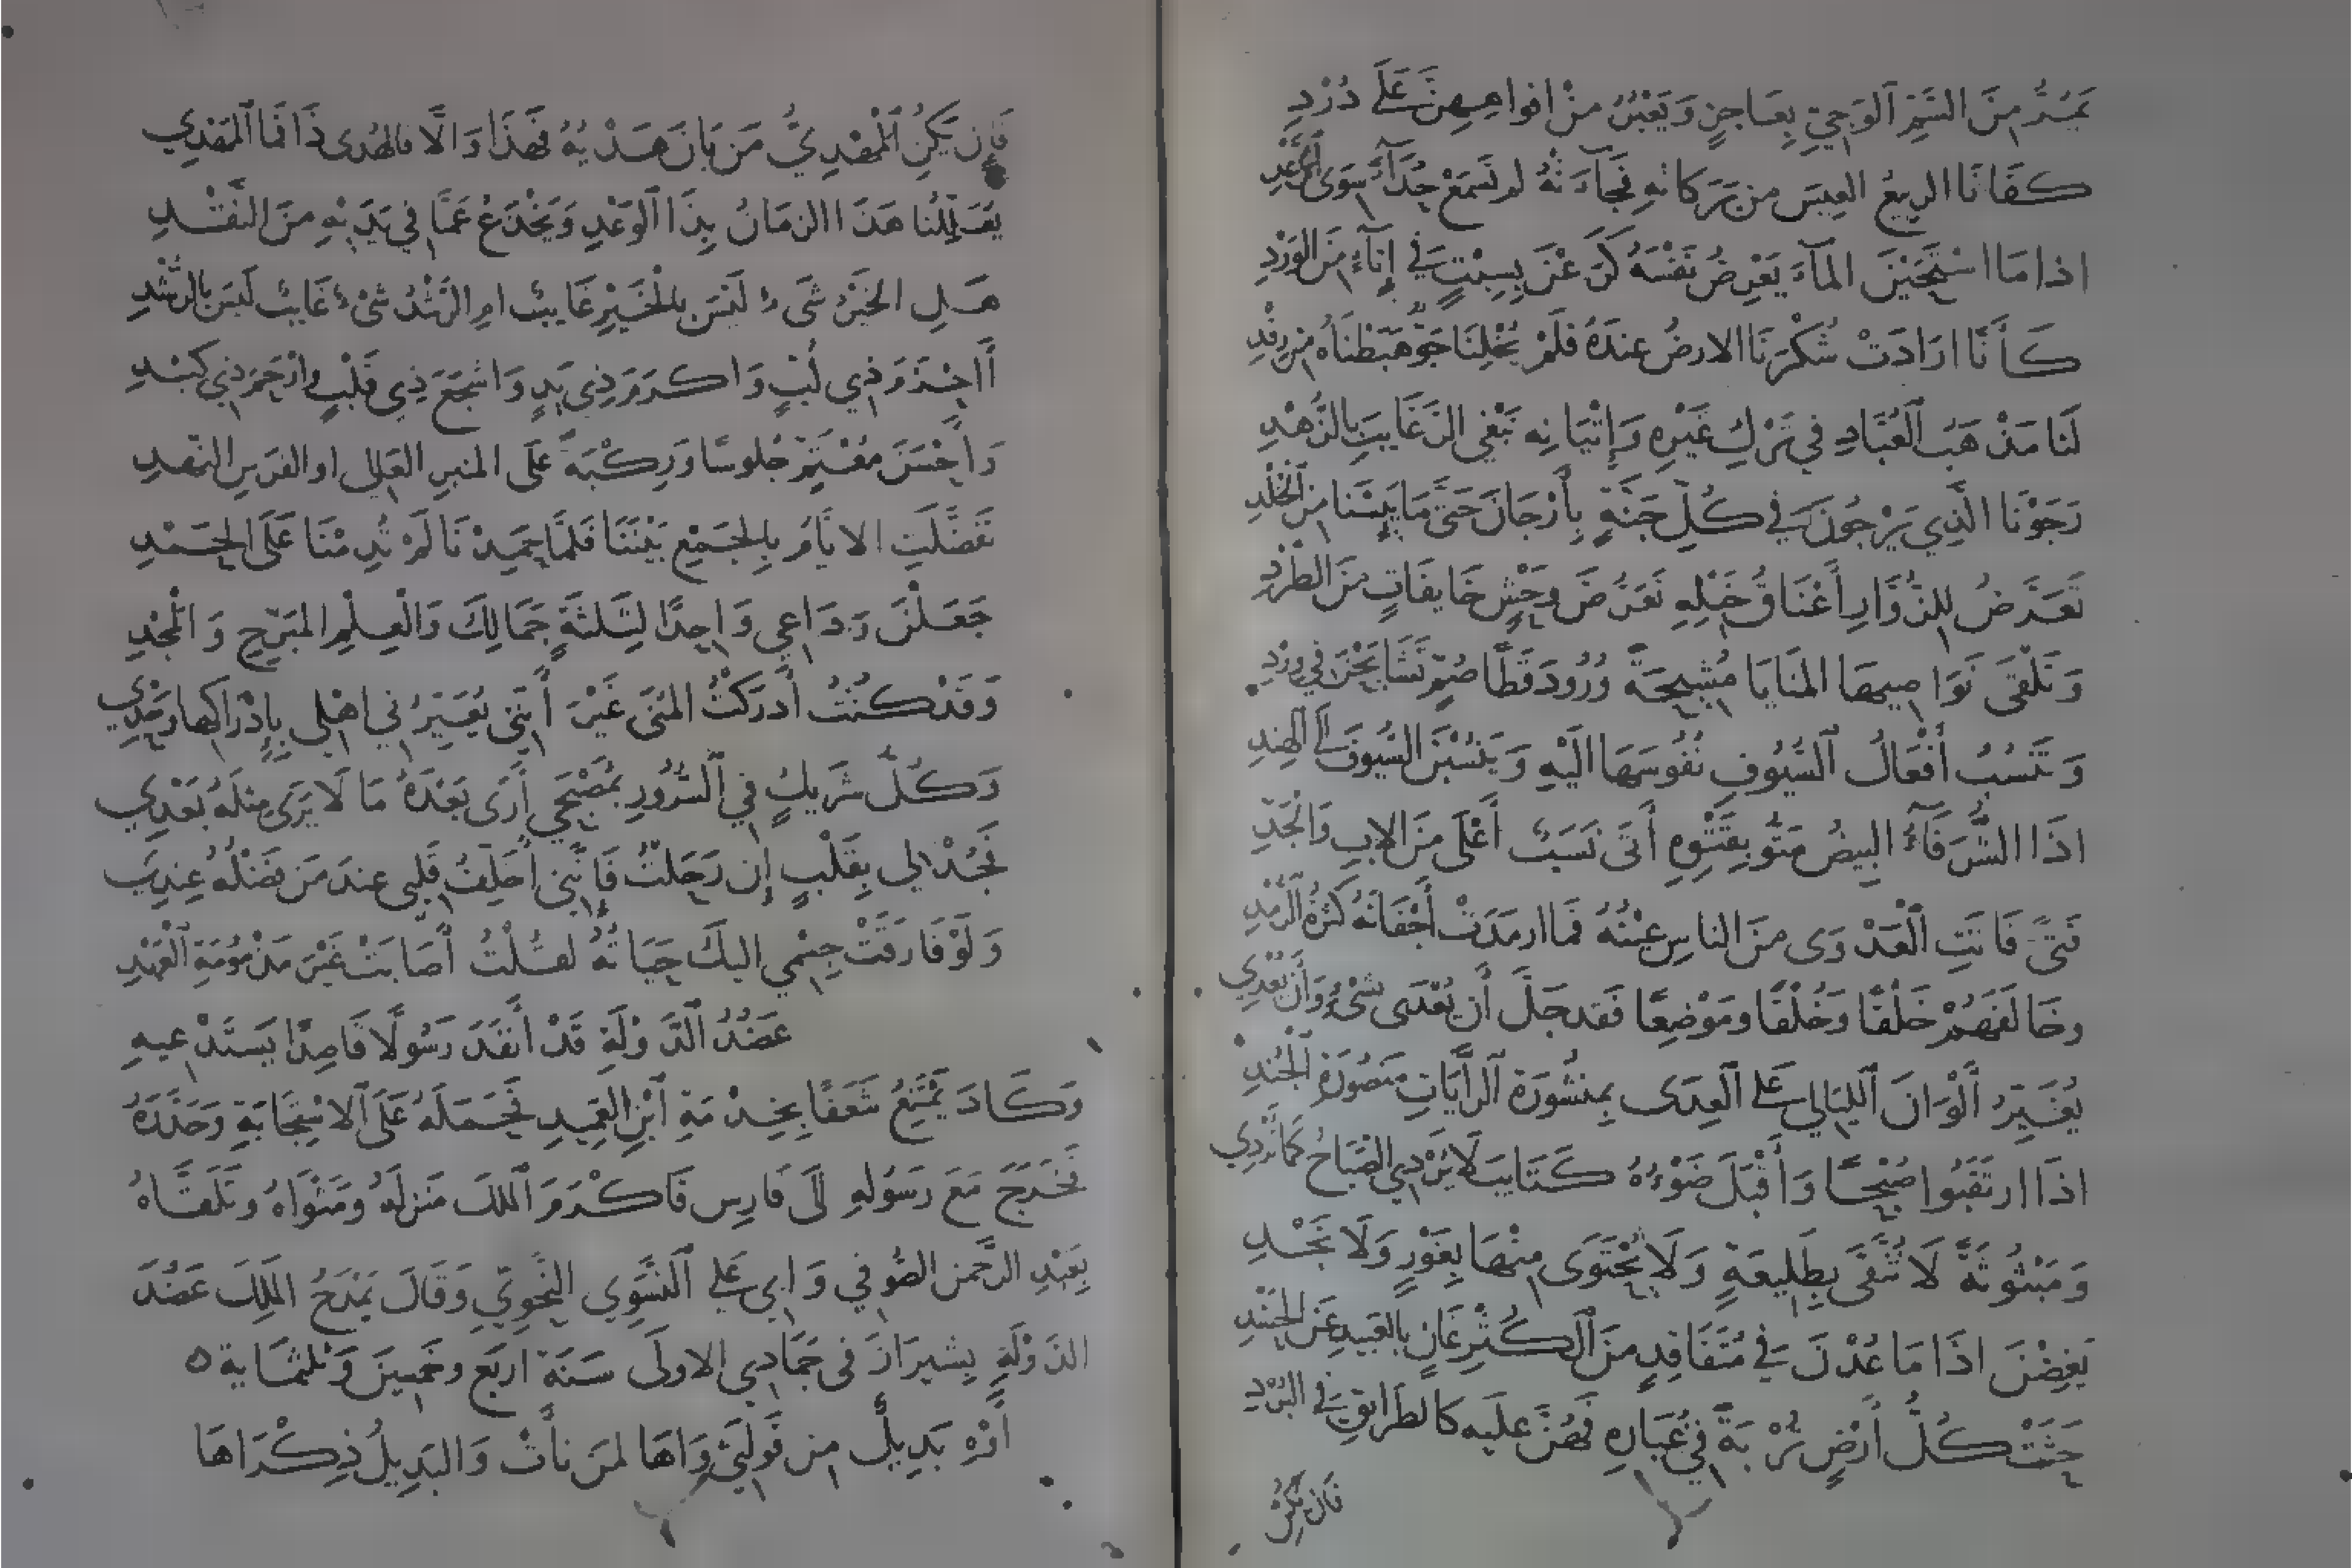 يَمُدُّ مِنَ السَّيْرِ الوَجِيِّ بِعَاجِنٍ وَيَعْبُرُ مِنْ افواهِهِنَّ عَلَى دُرْدِ
كفَانَا الربيعُ العِيسَ من بَرَكَاتهِ فَجَآءَتْهُ لم تَسمَعْ حُدَآءً سِوَى الرَّعْدِ
اذا مَا اسْتَحَيْنَ المَآءَ يَعْرِضُ نَفْسَهُ كَرَعْنَ بِسِبْتٍ فِي إِنَآءٍ مِنَ الوَرْدِ
كَأَنَّا ارَادَتْ شُكْرَنَا الارضُ عندَهُ فَلَمْ يُخْلِنَا جَوٌّ هَبَطْنَاهُ من رِفْدِ
لَنَا مَذْهَبُ العُبَّادِ في تَرْكِ غَيْرِهِ وَإِتْيَانِه نَبْغِي الرَّغَايبَ بِالزُّهْدِ
رَجَوْنَا الَّذِي يَرْجُونَ فِي كُلِّ جَنَّةٍ بِأَرْجَانَ حَتَّى مَا يَئِسْنَا مِنَ الخُلْدِ
تَعَرَّضُ للزُّوَّارِ أَعْنَاقُ خَيْلِهِ تَعَرُّضَ وَحْشٍ خَايفَاتٍ مِنَ الطَّرْدِ
وَتَلْقَى نَوَاصِيهَا المَنَايَا مُشِيحَةً وُرُودَ قَطًا صُمٍّ تَشَايَحْنَ في وِرْدِ
وَتَنْسُبُ أَفْعَالُ السُّيُوفِ نُفُوسَهَا الَيْهِ وَيَنْسُبْنَ السُّيُوفَ الَى الهِنْدِ
اذَا الشُّرَفَآءُ البِيضُ مَتُّوا بِقَتْوِهِ أَتَى نَسَبٌ أَعْلَى مِنَ الابِ وَالجَدِّ
فَتًى فَاتَتِ العَدْوَى منَ الناسِ عَيْنُهُ فَمَا ارمَدَتْ أَجْفَانَهُ كَثْرَةُ الرُّمْدِ
وخَالَفَهُمْ خَلْقًا وَخُلْقًا ومَوْضِعًا فَقَد جَلَّ أن يُعْدَى بشَيْءٍ وَأَن يُعْدِي
يُغَيِّرُ أَلْوَانَ اللَيَالِي عَلَى العِدَى بِمَنْشُورَةِ الرَّايَاتِ مَنصُورَةِ الجُنْدِ
اذَا ارتَقَبُوا صُبْحًا وَأَقْبَلَ ضَوْءُهُ كَتَايبَ لَا يُرْدِي الصَّبَاحُ كَمَا تُرْدِي
وَمَبْثُوثَةً لَا تُتَّقَى بِطَلِيعَةٍ وَلَا يُحْتَوَى مِنْهَا بِغَوْرٍ وَلَا نَجْدِ
يَغِضْنَ اذَا مَا عُدْنَ فِي مُتَفَاقِدٍ مِنَ الكُثْرِ غَانٍ بالعَبِيدِ عَنِ الحَشْدِ
حَثَتْ كُلُّ أَرْضٍ تُرْبَةً فِي غُبَارِهِ فَهُنَّ عَلَيهِ كَالطَرَايقِ فِي البُرْدِ
فَان يَكُنِ
فَإِن يَكُنِ المَهْدِيُّ مَن بَانَ هَدْيُهُ فَهَذَا وَالَّا فالهُدى ذَا فَمَا المَهْدِي
يُعَلِّلُنا هَذَا الزمَانُ بِذَا الوَعْدِ وَيَخْدَعُ عَمَّا فِي يَدَيْهِ مِنَ النَّقْدِ
هَلِ الخَيْرُ شَيءٌ لَيْسَ بالخَيْرِ غَايبٌ امِ الرُّشْدُ شَيْءٌ غَايبٌ لَيسَ بالرُّشْدِ
أَاحْزَمَ ذِي لُبٍّ وَاكرَمَ ذِي يَدٍ وَاشجَعَ ذِي قَلْبٍ وارْحَمَ ذِي كَبْدِ
وَأَحْسَنَ مُعْتَمٍّ جُلوسًا وَرِكْبَةً عَلَى المنبرِ العَالِي او الفرَسِ النَّهدِ
تَفَضَّلَتِ الايَّامُ بِالجَمْعِ بَيْنَنَا فَلَمَّا حَمِدْنَا لَمْ تُدِمْنَا عَلَى الحَمْدِ
جَعَلْنَ وَدَاعِي وَاحِدًا لِثَلثَةٍ جَمَالِكَ وَالعِلْمِ المُبَرِّحِ وَالمَجْدِ
وَقَدْ كُنْتُ أَدرَكْتُ المُنَى غَيْرَ أَنَّنِي يُعَيِّرُنِي اهْلِي بِإِدْرَاكِهَا وَحْدِي
وَكُلُّ شَرِيكٍ فِي السُّرُورِ بِمُصْبَحِي أَرَى بَعْدَهُ مَا لَا يَرَى مِثلَهُ بَعْدِي
فَجُدْ لِي بِقَلْبٍ إِن رَحَلْتُ فَإِنَّنِي أُخَلِّفُ قَلبِي عِندَ مَن فَضْلُهُ عِندِي
وَلَوْ فَارَقَتْ جِسْمِي اليكَ حَيَاتُهُ لَقُلْتُ أَصَابَتْ غَيْرَ مَذْمُومَةِ العَهْدِ
عَضُدُ الدَّوْلَةِ قَدْ أَنفَذَ رَسُولًا قَاصِدًا يَسْتَدْعِيهِ
وَكَادَ يَمْتَنِعُ شَعَفًا بِخِدْمَةِ ابْنِ العَمِيدِ فَحَمَلَهُ عَلَى الاسْتِجَابَةِ وَحَذَّرَهُ
فَخَرَجَ مَعَ رَسُولِهِ الَى فَارِس فَاكْرَمَ المَلكُ مَنزلَهُ ومَثْوَاهُ وتَلَقَّاهُ
بِعَبْدِ الرَّحْمن الصُّوفِي وَابِي عَلِي الفَسَوِي النَّحْوِيِّ وَقَالَ يَمْدَحُ المَلِكَ عَضُدَ
الدَوْلَةِ بِشِيرَازَ في جُمَادِي الاولَى سَنَةَ اربَع وخَمسِينَ وَثلثمَاية ه
أَوْهِ بَدِيلٌ مِن قَولَتِي وَاهَا لمَن نَأَتْ وَالبَدِيلُ ذِكْرَاهَا